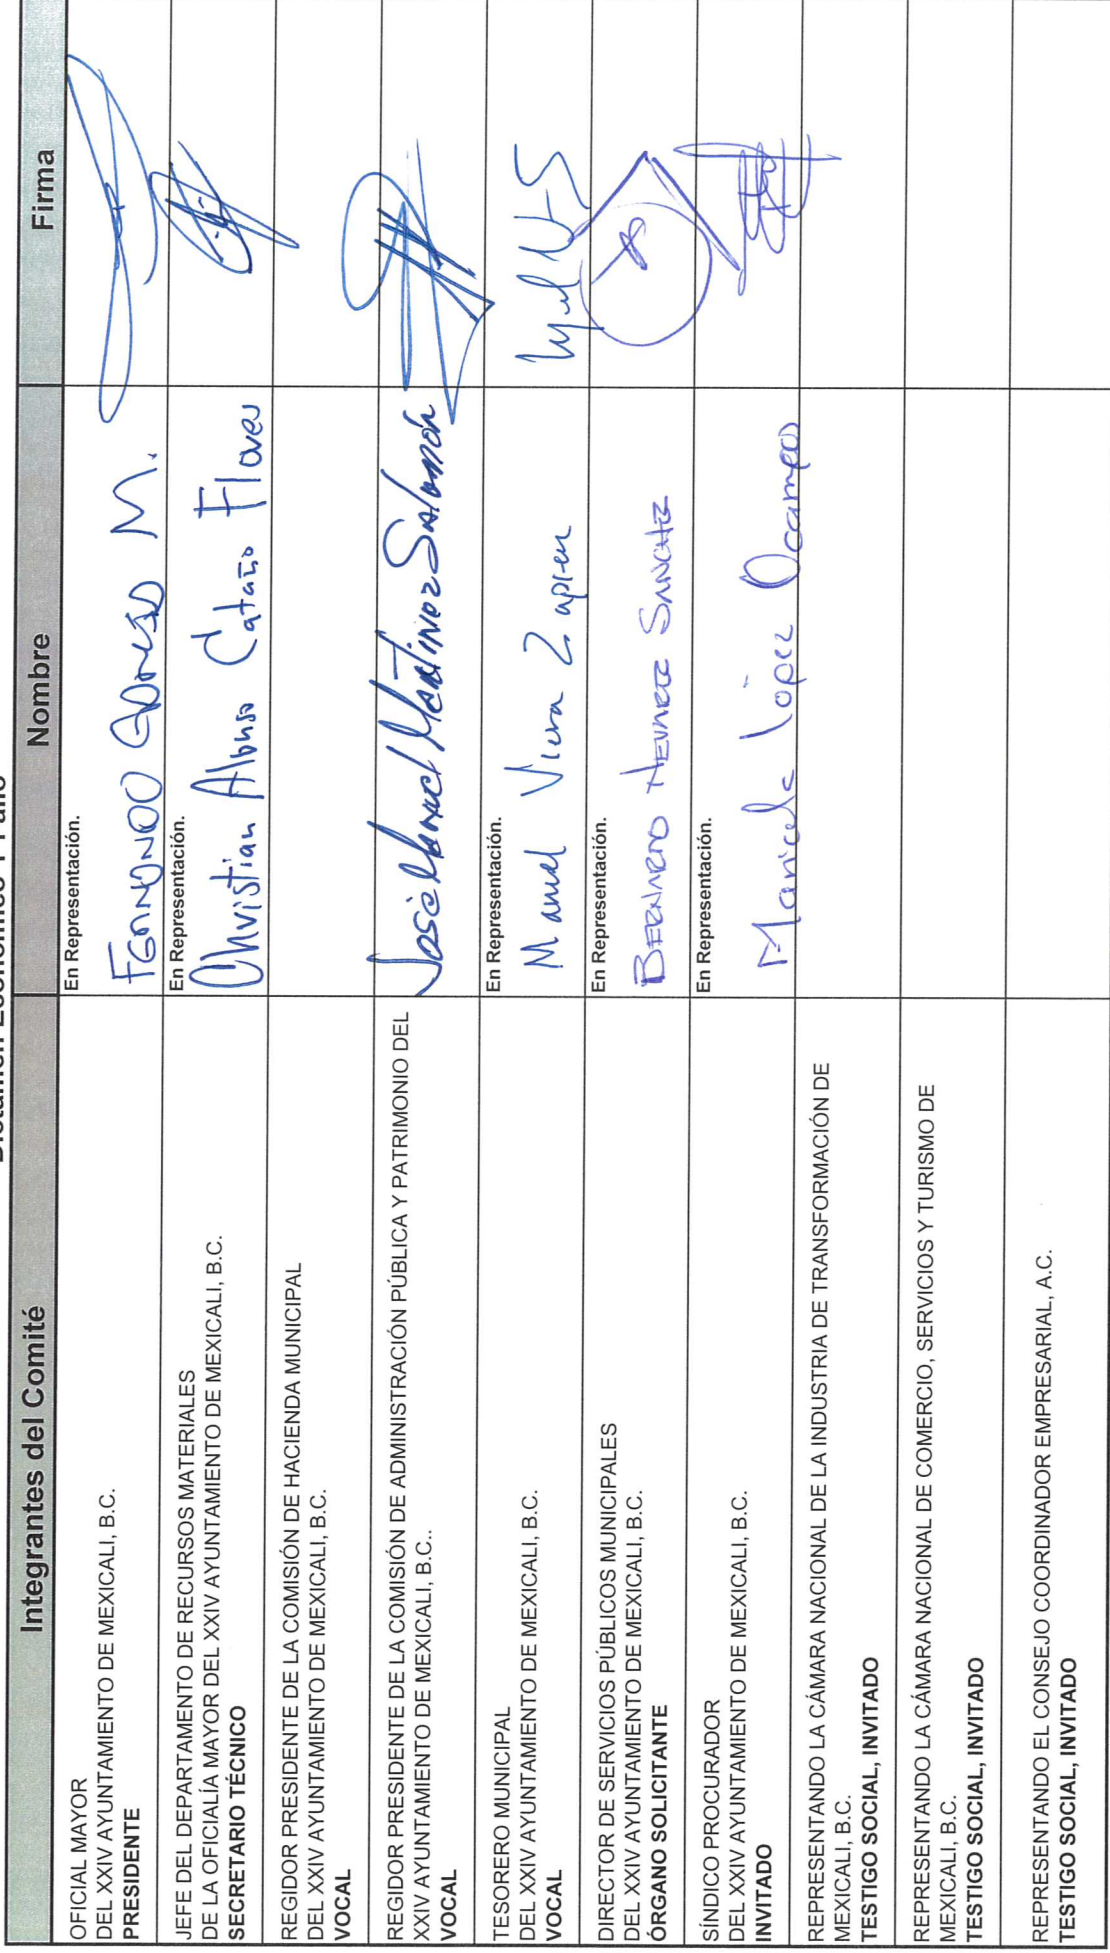 Integrantes del Comité Nombre Firma
OFICIAL MAYOR
DEL XXIV AYUNTAMIENTO DE MEXICALI, B.C.
PRESIDENTE
En Representación.
JEFE DEL DEPARTAMENTO DE RECURSOS MATERIALES
DE LA OFICIALÍA MAYOR DEL XXIV AYUNTAMIENTO DE MEXICALI, B.C.
SECRETARIO TÉCNICO
En Representación.
Christian Alonso Cataño Flores
REGIDOR PRESIDENTE DE LA COMISIÓN DE HACIENDA MUNICIPAL
DEL XXIV AYUNTAMIENTO DE MEXICALI, B.C.
VOCAL
REGIDOR PRESIDENTE DE LA COMISIÓN DE ADMINISTRACIÓN PÚBLICA Y PATRIMONIO DEL
XXIV AYUNTAMIENTO DE MEXICALI, B.C..
VOCAL
José Manuel Martinez Salomón
TESORERO MUNICIPAL
DEL XXIV AYUNTAMIENTO DE MEXICALI, B.C.
VOCAL
En Representación.
Manuel Zapien
DIRECTOR DE SERVICIOS PÚBLICOS MUNICIPALES
DEL XXIV AYUNTAMIENTO DE MEXICALI, B.C.
ÓRGANO SOLICITANTE
En Representación.
BERNARDO SANCHEZ
SÍNDICO PROCURADOR
DEL XXIV AYUNTAMIENTO DE MEXICALI, B.C.
INVITADO
En Representación.
Maricela López Ocampo
REPRESENTANDO LA CÁMARA NACIONAL DE LA INDUSTRIA DE TRANSFORMACIÓN DE
MEXICALI, B.C.
TESTIGO SOCIAL, INVITADO
REPRESENTANDO LA CÁMARA NACIONAL DE COMERCIO, SERVICIOS Y TURISMO DE
MEXICALI, B.C.
TESTIGO SOCIAL, INVITADO
REPRESENTANDO EL CONSEJO COORDINADOR EMPRESARIAL, A.C.
TESTIGO SOCIAL, INVITADO